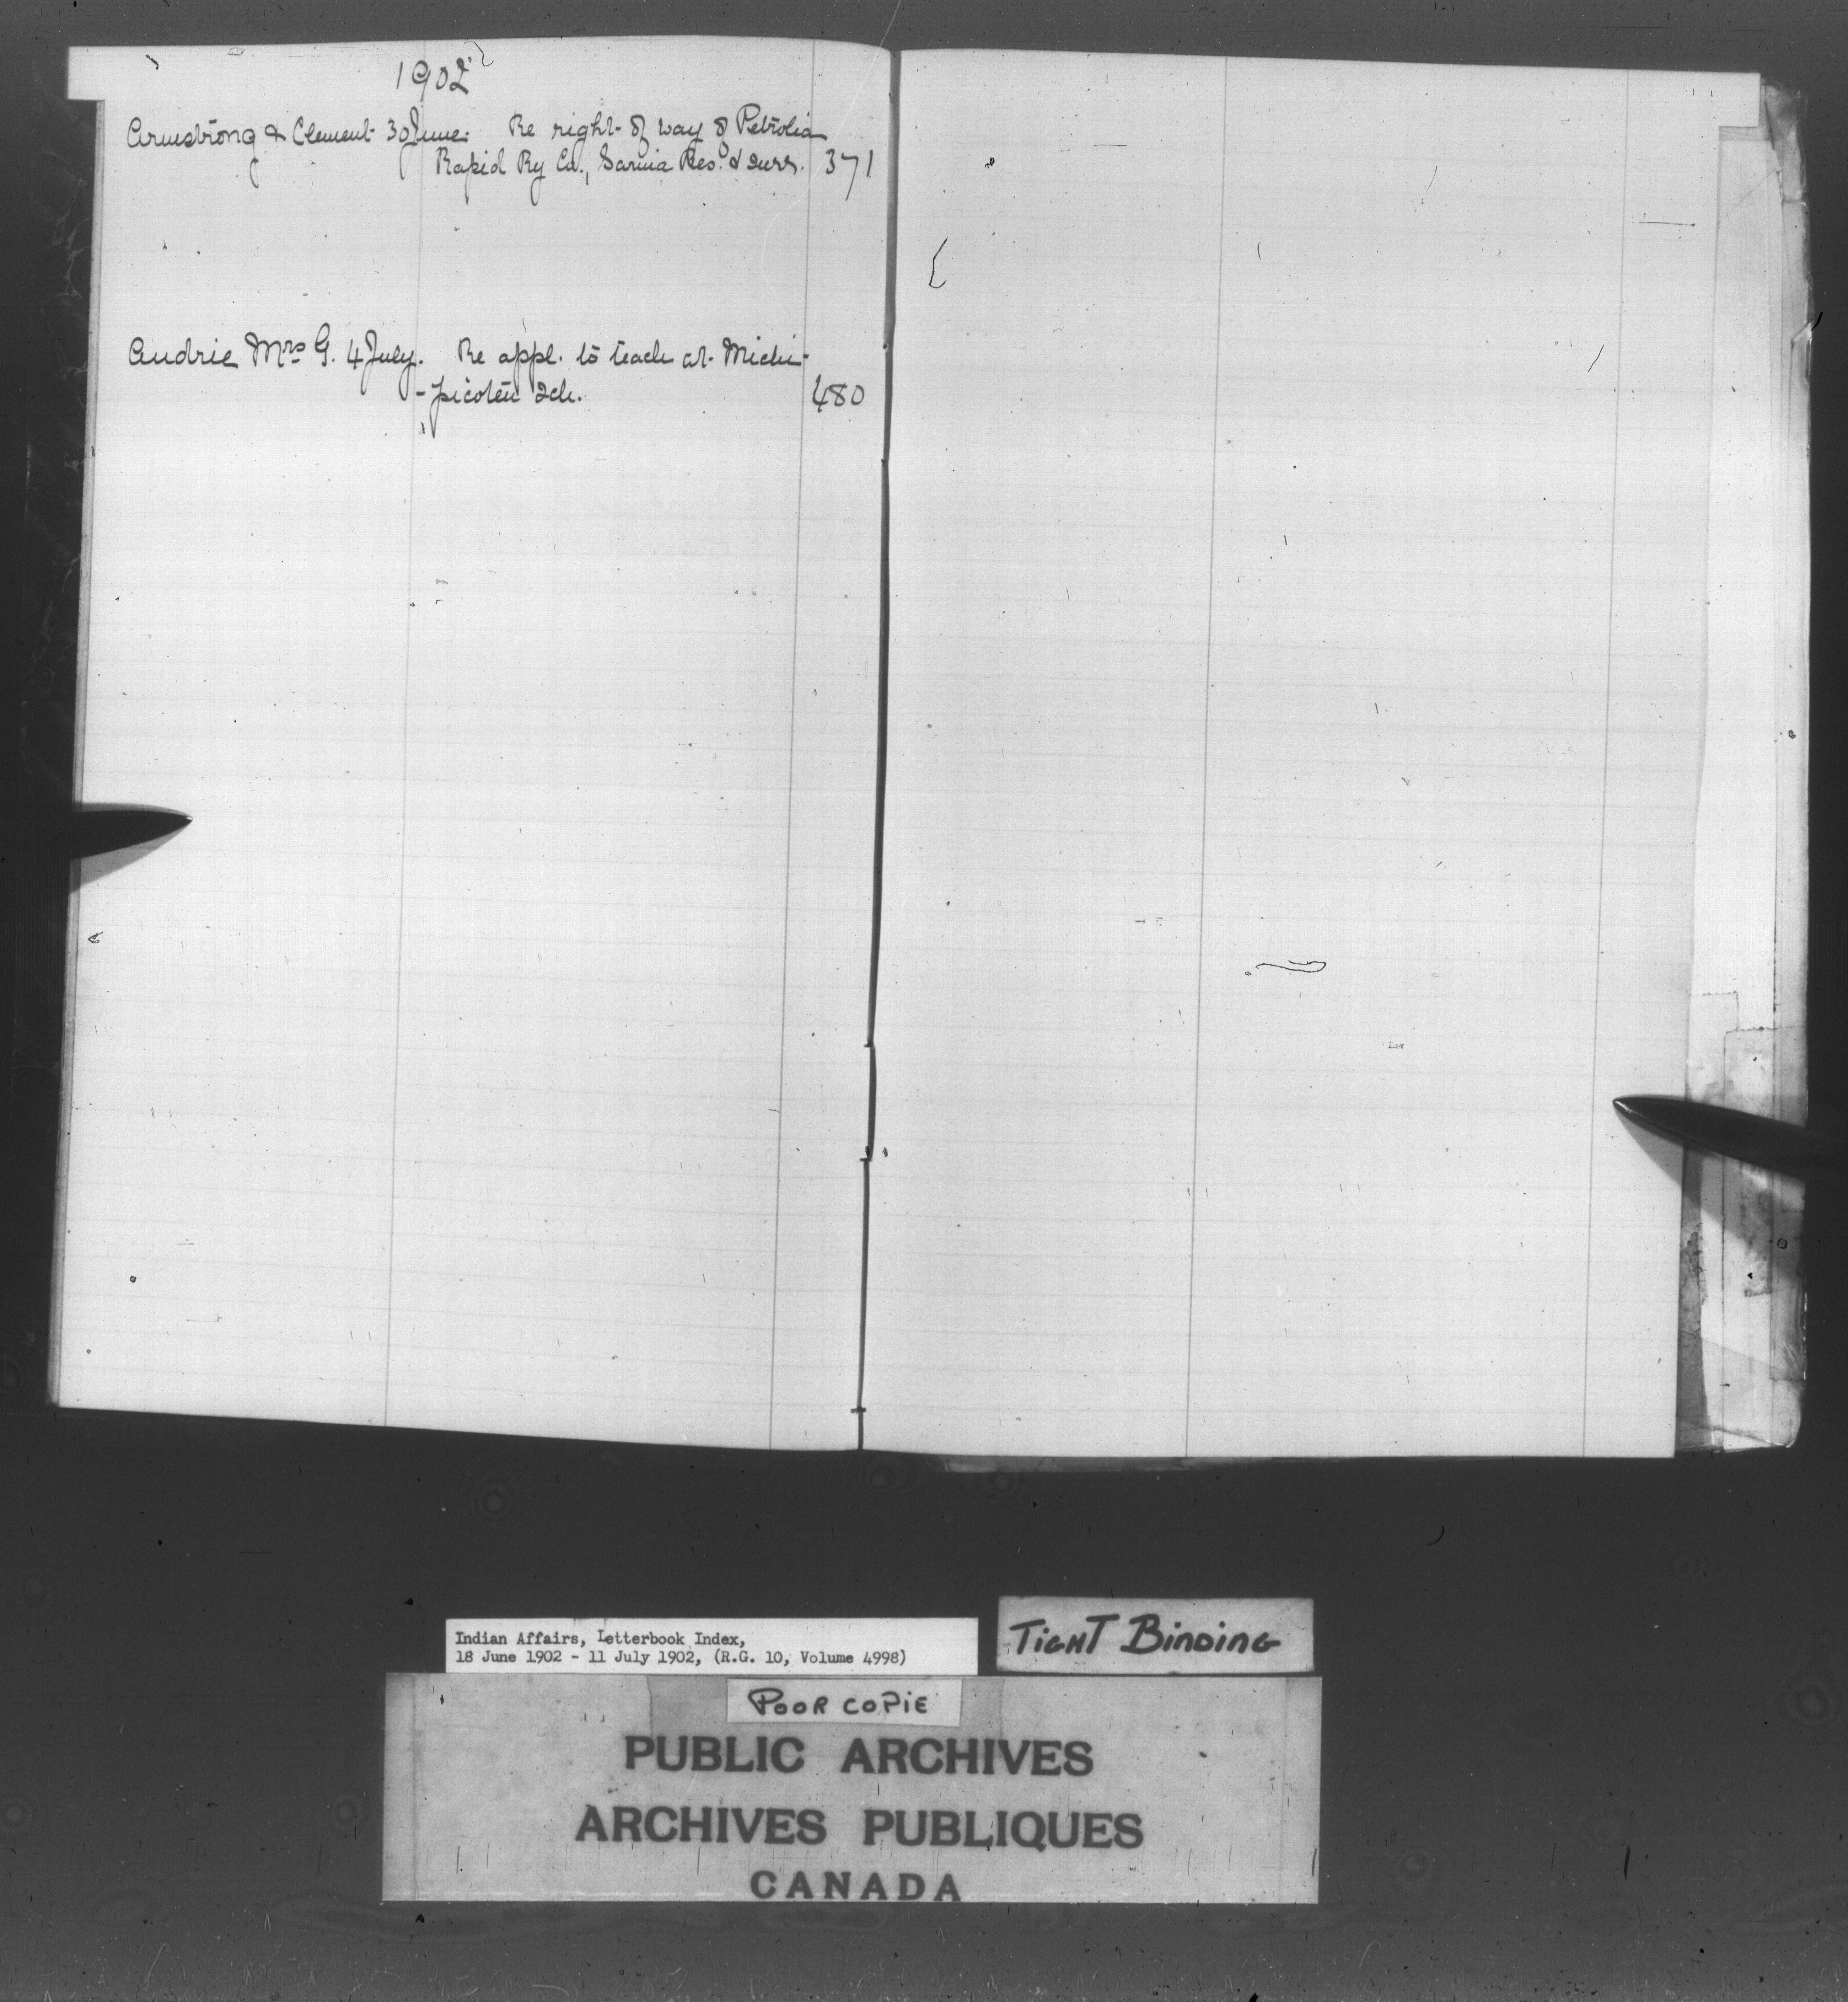 1902
Armstrong & Clement 30 June. Re right of way of Petrolia
Rapid Ry Co., Sarnia Res. & surr. 371
Audrie Mrs G. 4 July. Re appl. to teach at Michi-
-picoten Sch. 480
Indian Affairs, Letterbook Index,
18 June 1902 - 11 July 1902, (R.G. 10, Volume 4998)
TIGHT BINDING
POOR COPIE
PUBLIC ARCHIVES
ARCHIVES PUBLIQUES
CANADA